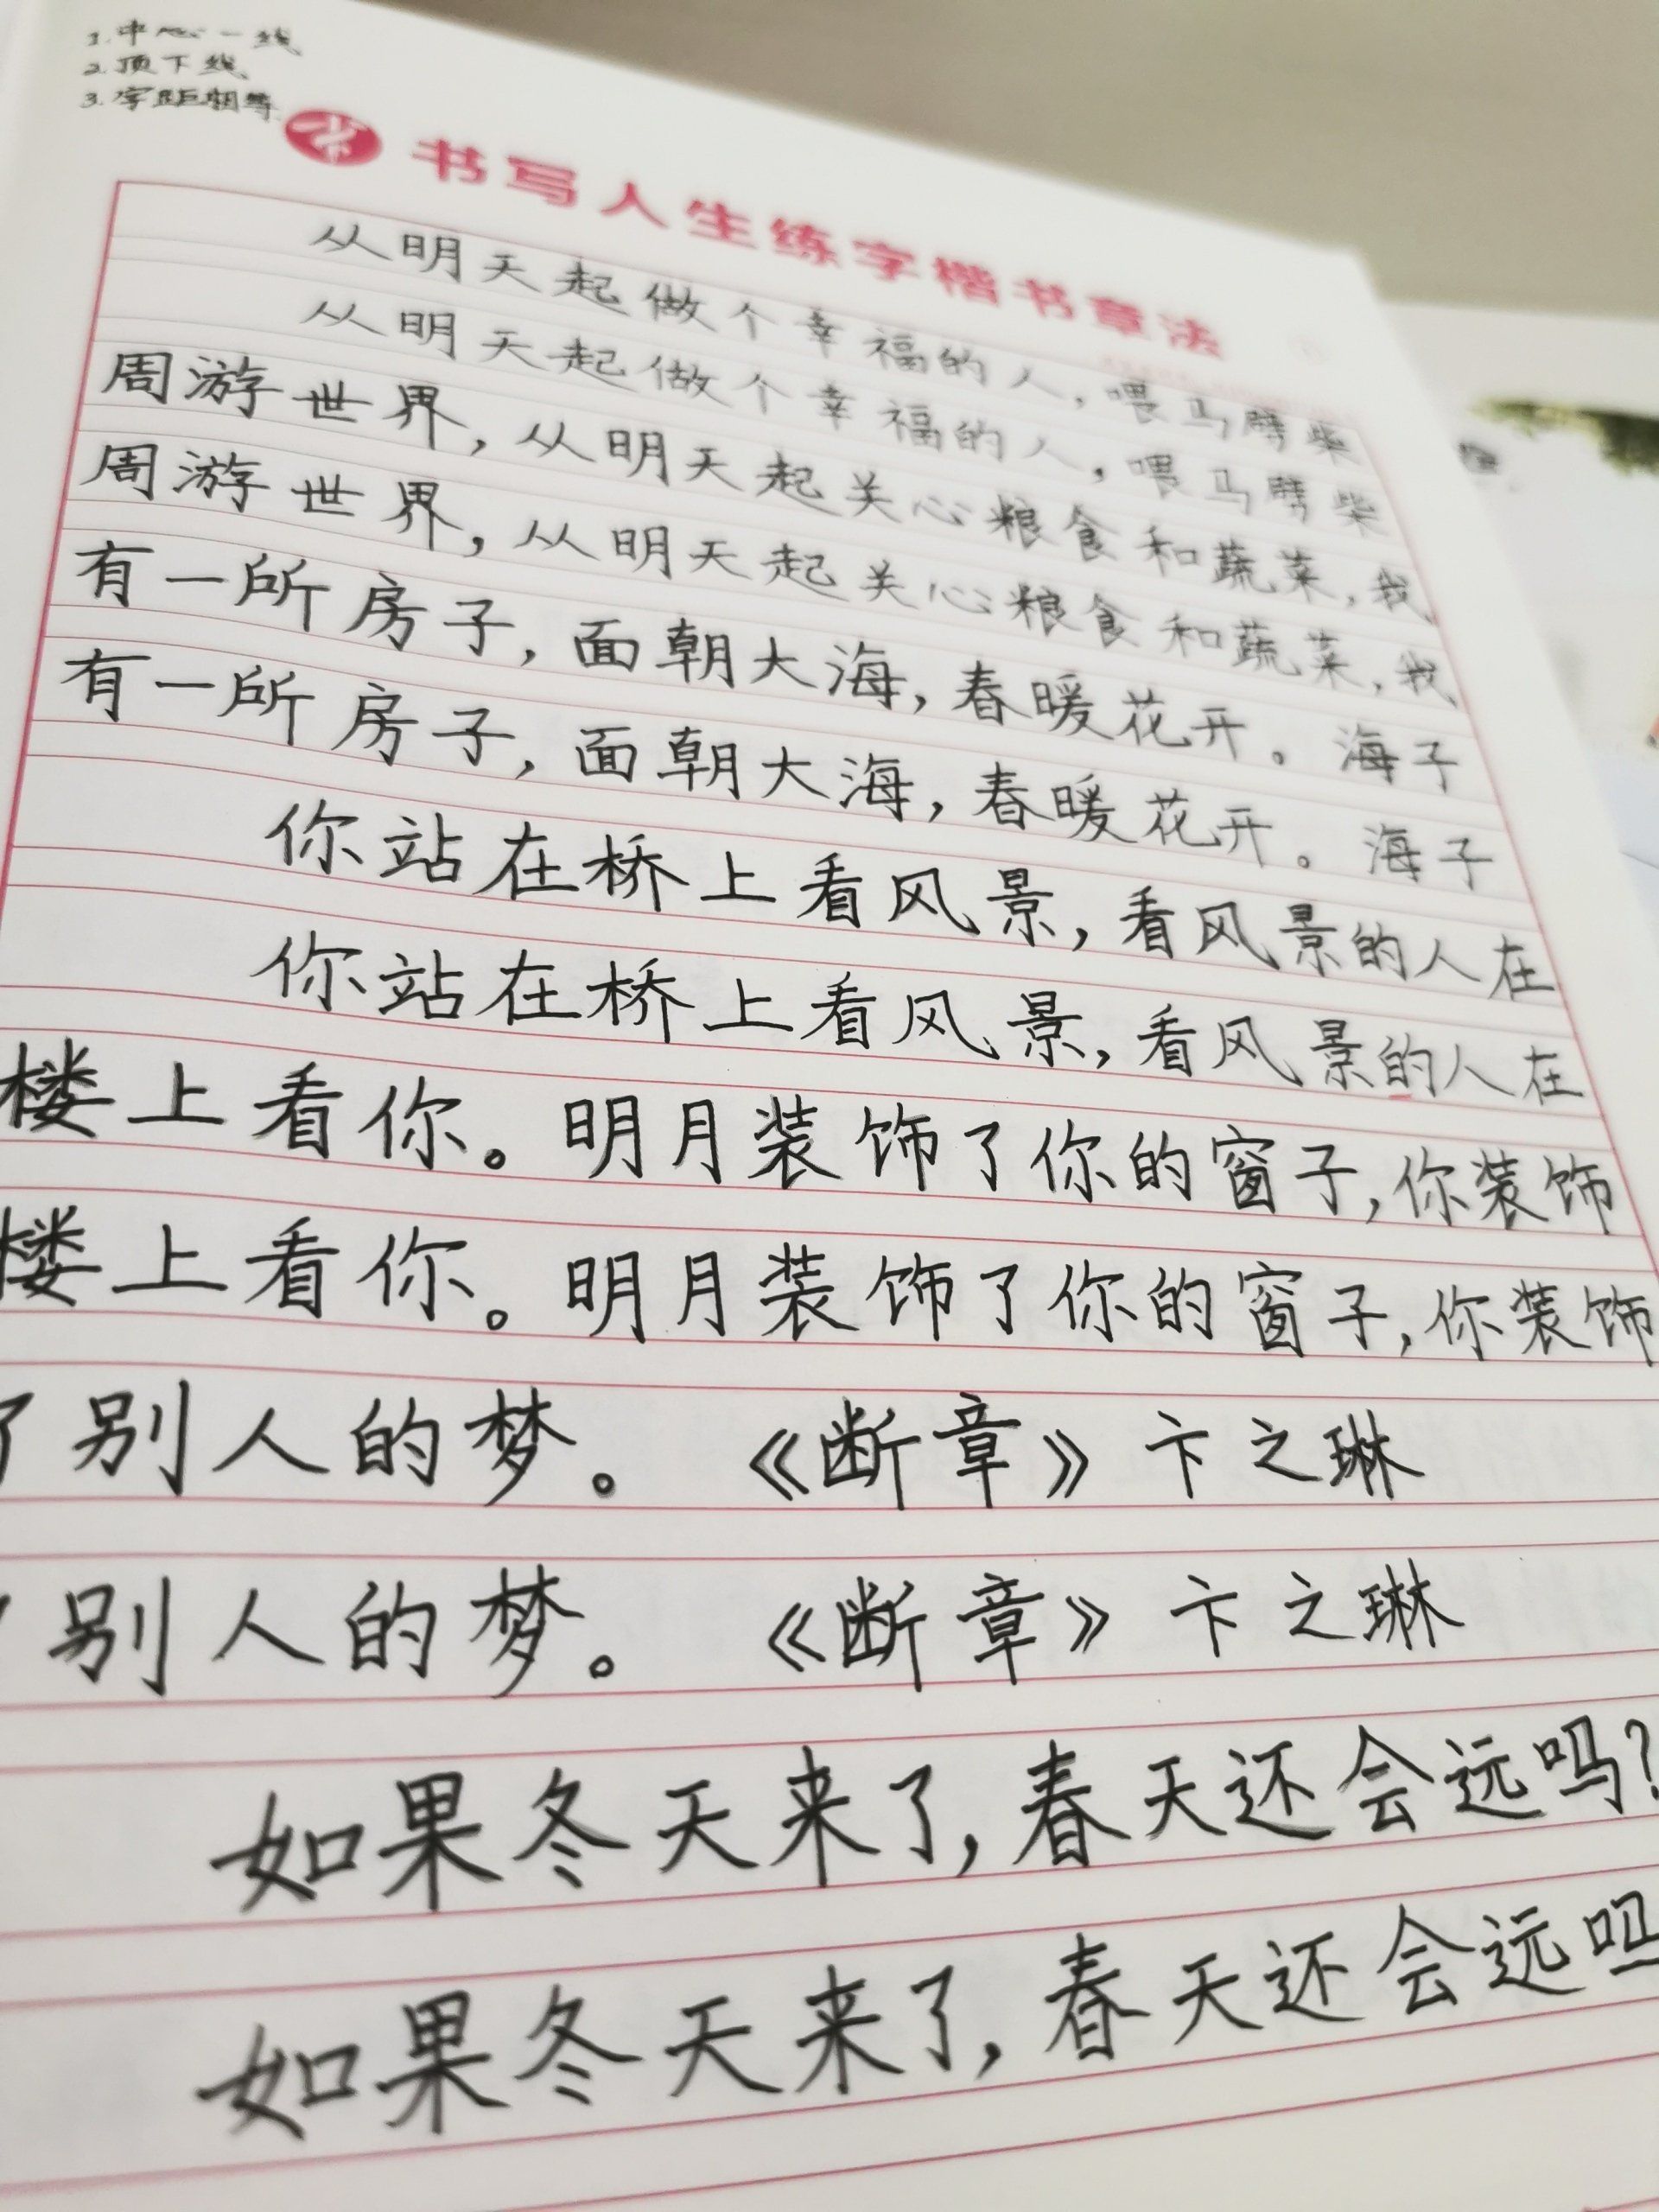 1. 中心一线
2. 顶下线
3. 字距相等
书 书写人生练字楷书章法
从明天起做个幸福的人,喂马劈柴
从明天起做个幸福的人,喂马劈柴
周游世界,从明天起关心粮食和蔬菜,我
周游世界,从明天起关心粮食和蔬菜,我
有一所房子,面朝大海,春暖花开。海子
有一所房子,面朝大海,春暖花开。海子
你站在桥上看风景,看风景的人在
你站在桥上看风景,看风景的人在
楼上看你。明月装饰了你的窗子,你装饰
楼上看你。明月装饰了你的窗子,你装饰
了别人的梦。 《断章》卞之琳
别人的梦。 《断章》卞之琳
如果冬天来了,春天还会远吗?
如果冬天来了,春天还会远吗